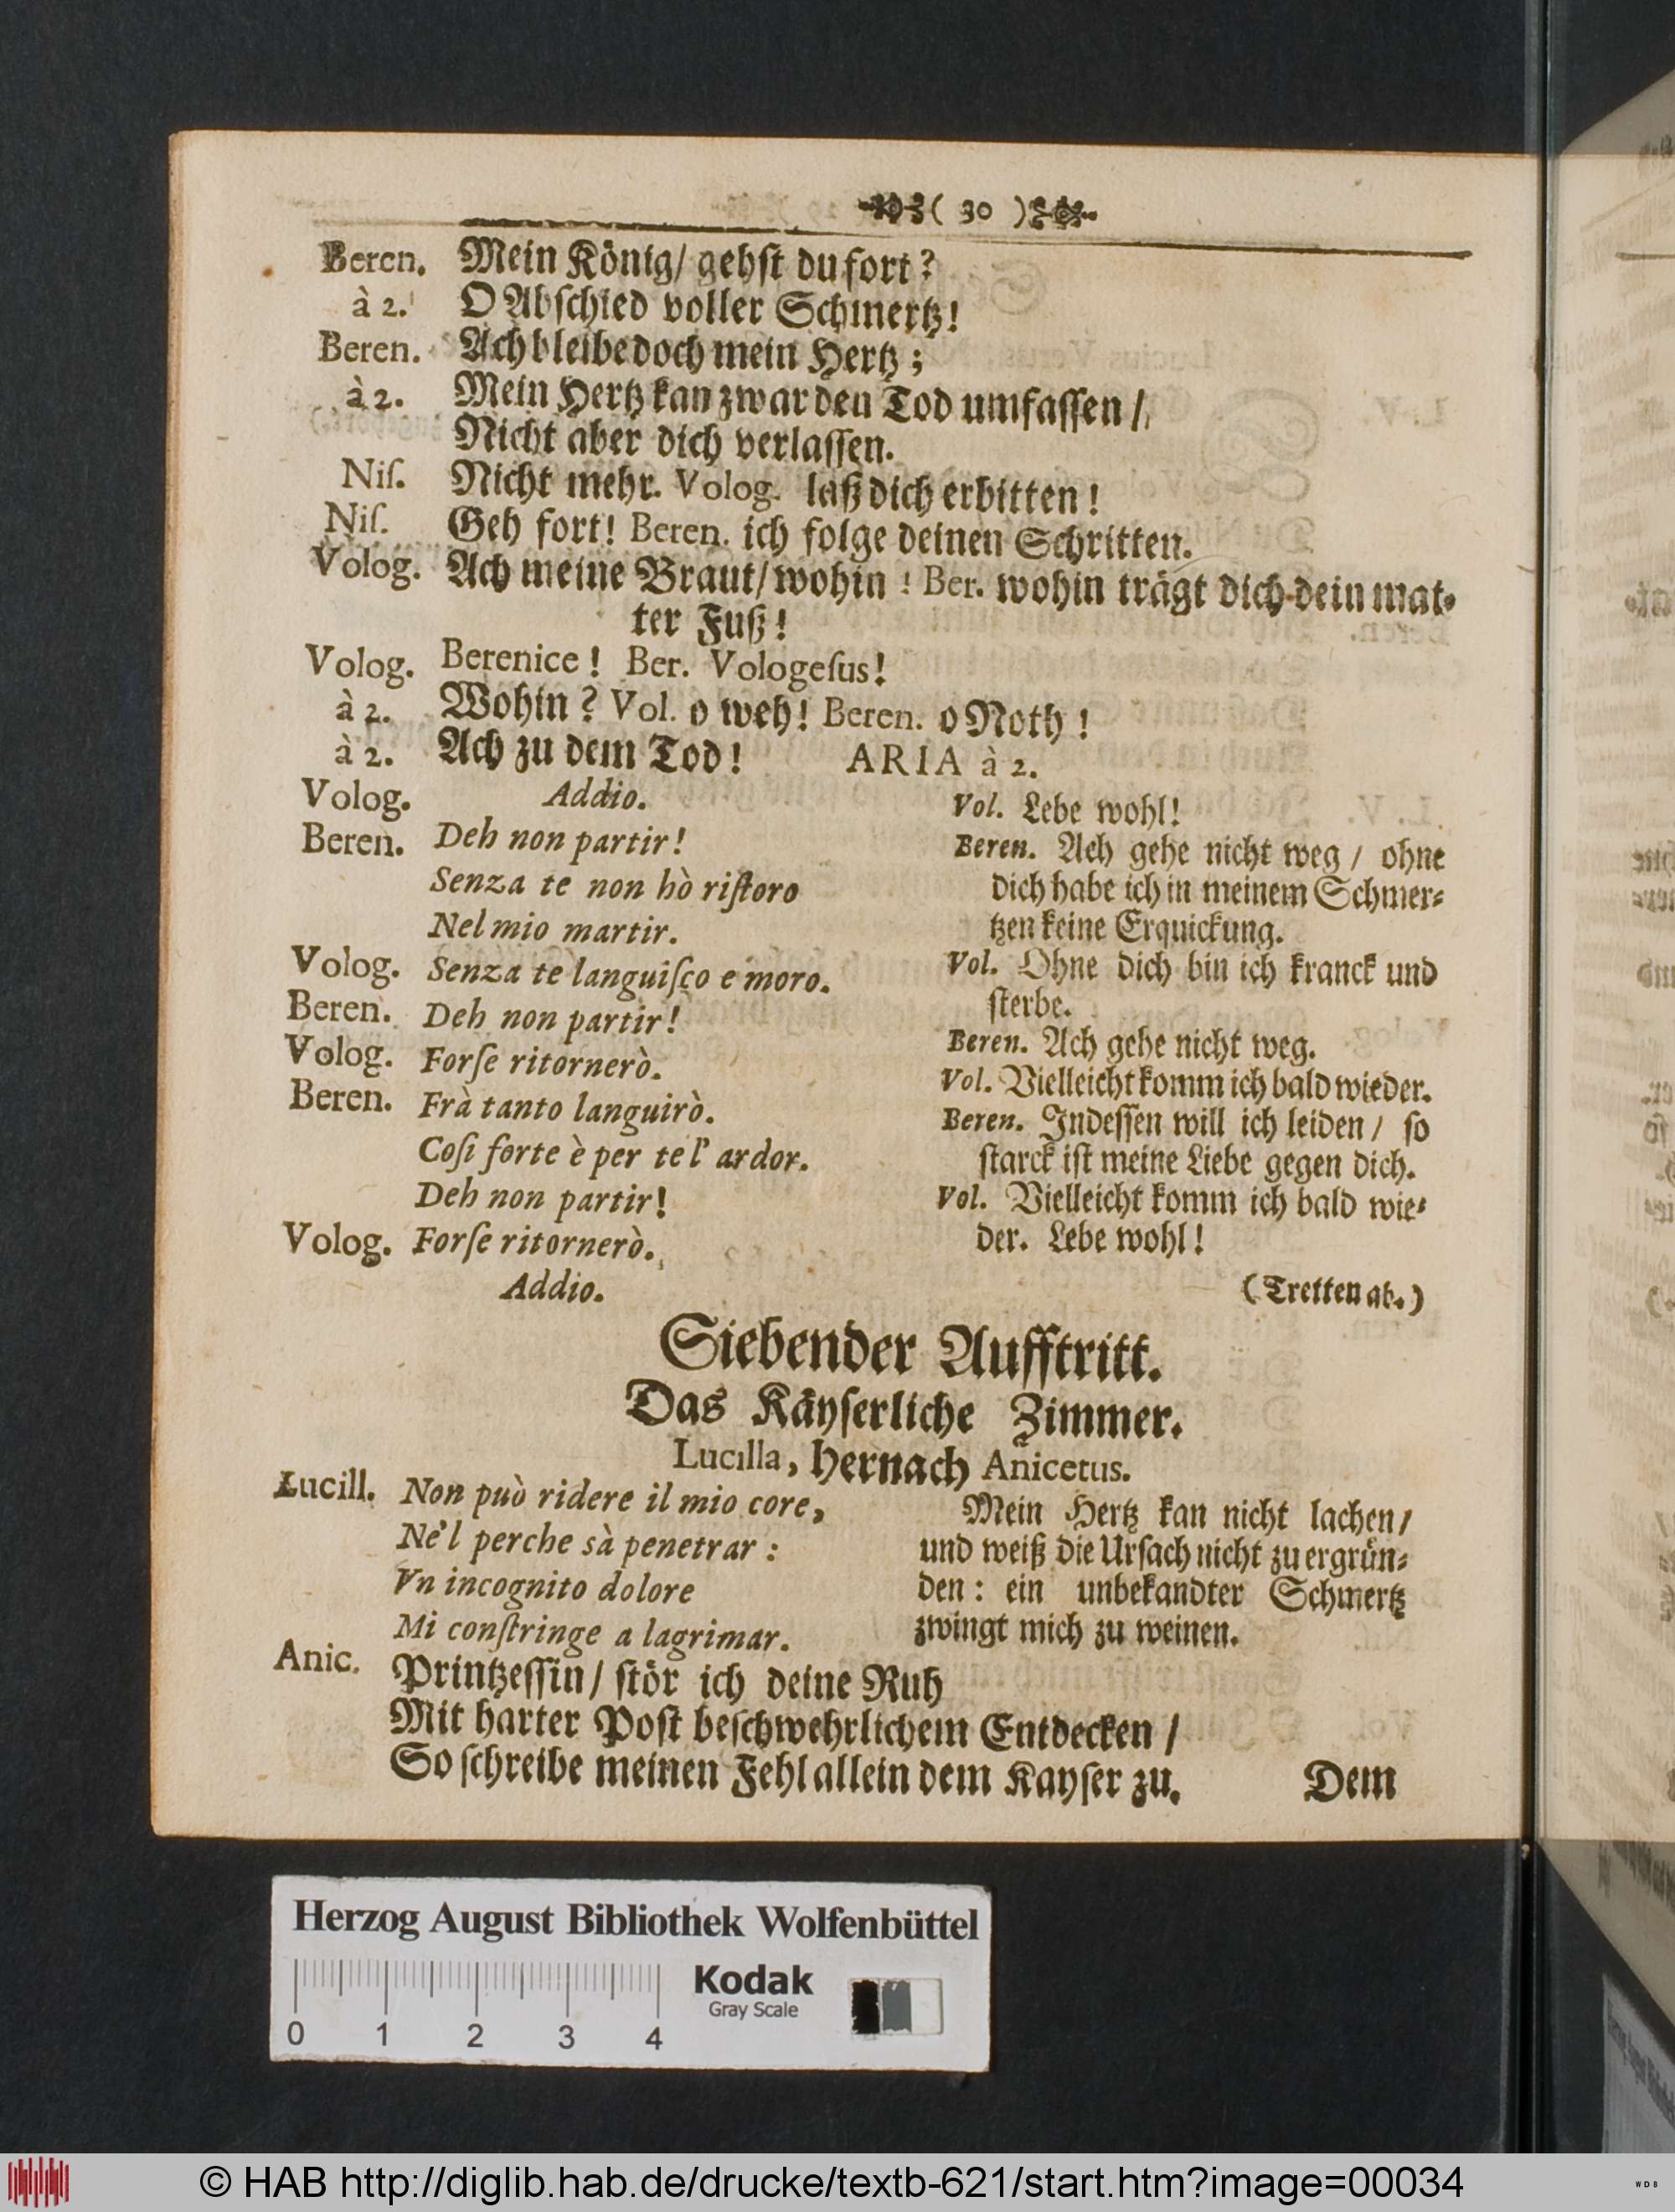 ( 30 )
Beren. Mein König/ gehst du fort?
à 2. O Abschied voller Schmertz!
Beren. Ach bleibe doch mein Hertz;
à 2. Mein Hertz kan zwar den Tod umfassen/
Nicht aber dich verlassen.
Niſ. Nicht mehr. Volog. laß dich erbitten!
Niſ. Geh fort! Beren. ich folge deinen Schritten.
Volog. Ach meine Braut/ wohin! Ber. wohin trägt dich dein mat-
ter Fuß!
Volog. Berenice! Ber. Vologeſus!
à 2. Wohin? Vol. o weh! Beren. o Noth!
à 2. Ach zu dem Tod! ARIA à 2.
Volog. Addio.
Beren. Deh non partir!
Senza te non hò riſtoro
Nel mio martir.
Volog. Senza te languiſco e moro.
Beren. Deh non partir!
Volog. Forſe ritornerò.
Beren. Frà tanto languirò.
Coſi forte è per te l' ardor.
Deh non partir!
Volog. Forſe ritornerò.
Addio.
Vol. Lebe wohl!
Beren. Ach gehe nicht weg/ ohne
dich habe ich in meinem Schmer-
tzen keine Erquickung.
Vol. Ohne dich bin ich kranck und
sterbe.
Beren. Ach gehe nicht weg.
Vol. Vielleicht komm ich bald wieder.
Beren. Indessen will ich leiden/ so
starck ist meine Liebe gegen dich.
Vol. Vielleicht komm ich bald wie-
der. Lebe wohl!
(Tretten ab.)
Siebender Aufftritt.
Das Käyserliche Zimmer.
Lucilla, hernach Anicetus.
Lucill. Non può ridere il mio core,
Ne'l perche sà penetrar:
Vn incognito dolore
Mi conſtringe a lagrimar.
Mein Hertz kan nicht lachen/
und weiß die Ursach nicht zu ergrün-
den: ein unbekandter Schmertz
zwingt mich zu weinen.
Anic. Printzessin/ stör ich deine Ruh
Mit harter Post beschwehrlichem Entdecken/
So schreibe meinen Fehl allein dem Kayser zu.
Dem
Herzog August Bibliothek Wolfenbüttel
0 1 2 3 4
Kodak
Gray Scale
© HAB http://diglib.hab.de/drucke/textb-621/start.htm?image=00034
WDB